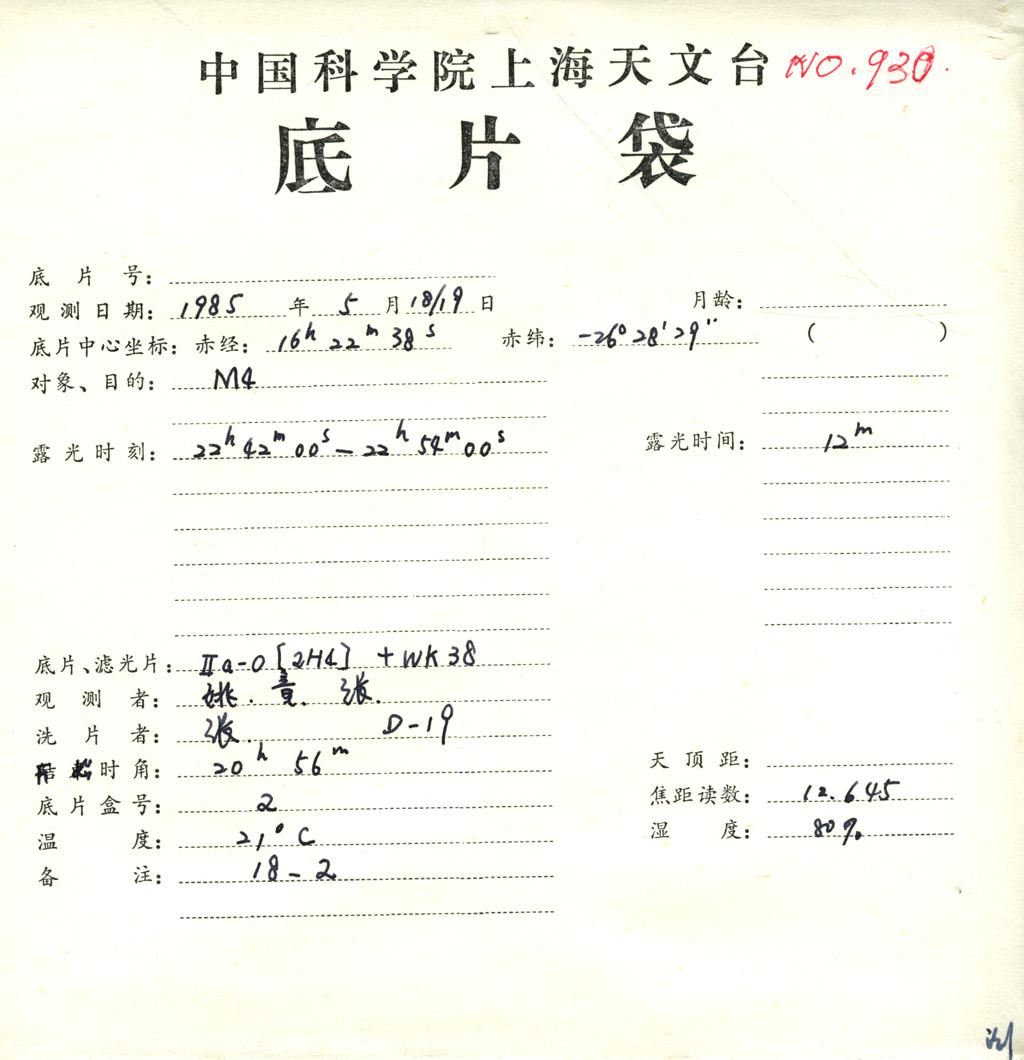 中国科学院上海天文台 NO.930.
底片袋
底片号：
观测日期：1985 年 5 月 18/19 日 月龄：
底片中心坐标：赤经：16h 22m 38s 赤纬：-26° 28′ 29″ ( )
对象、目的：M4
露光时刻：22h 42m 00s — 22h 54m 00s 露光时间：12m
底片、滤光片：IIa-O [2H4] + WK38
观测者：姚. 竟. 张.
洗片者：张. D-19
时角：20h 56m 天顶距：
底片盒号：2 焦距读数：12.645
温度：21°C 湿度：80%
备注：18-2